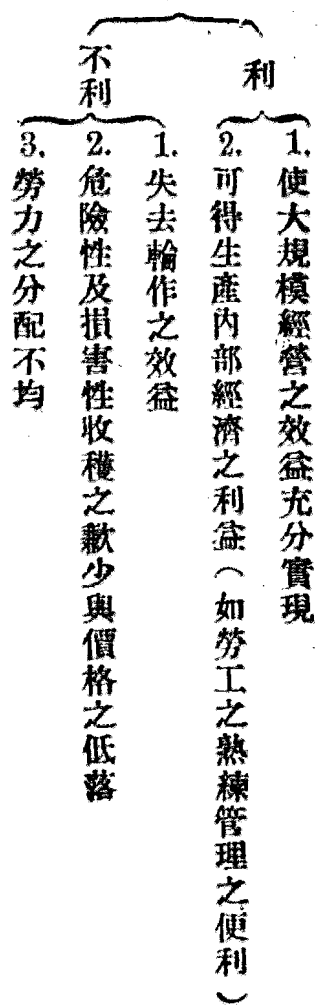 利
1.使大規模經營之效益充分實現
2.可得生產內部經濟之利益(如勞工之熟練管理之便利)
不利
1.失去輪作之效益
2.危險性及損害性收穫之歉少與價格之低落
3.勞力之分配不均